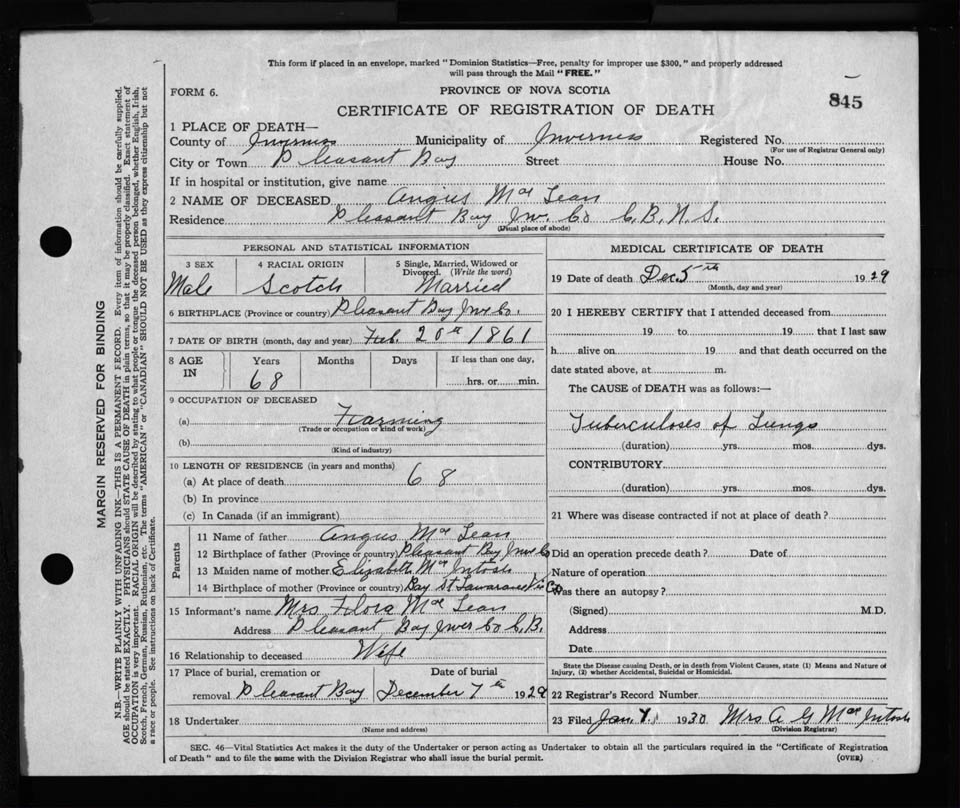 This form if placed in an envelope, marked "Dominion Statistics—Free, penalty for improper use $300," and properly addressed
will pass through the Mail "FREE."
FORM 6.
PROVINCE OF NOVA SCOTIA
845
CERTIFICATE OF REGISTRATION OF DEATH
1 PLACE OF DEATH—
County of Inverness Municipality of Inverness Registered No.
(For use of Registrar General only)
City or Town Pleasant Bay Street House No.
If in hospital or institution, give name
2 NAME OF DECEASED Angus Mac Lean
Residence Pleasant Bay Inv. Co C.B. N.S.
(Usual place of abode)
PERSONAL AND STATISTICAL INFORMATION
3 SEX 4 RACIAL ORIGIN 5 Single, Married, Widowed or
Divorced. (Write the word)
Male Scotch Married
6 BIRTHPLACE (Province or country) Pleasant Bay Inv Co.
7 DATE OF BIRTH (month, day and year) Feb. 20th 1861
8 AGE IN Years Months Days If less than one day,
68 hrs. or min.
9 OCCUPATION OF DECEASED
(a) Farming
(Trade or occupation or kind of work)
(b)
(Kind of industry)
10 LENGTH OF RESIDENCE (in years and months)
(a) At place of death 68
(b) In province
(c) In Canada (if an immigrant)
Parents
11 Name of father Angus Mac Lean
12 Birthplace of father (Province or country) Pleasant Bay Inv Co
13 Maiden name of mother Elizabeth Mac Intosh
14 Birthplace of mother (Province or country) Bay St Lawarance Vic Co
15 Informant's name Mrs Flora Mac Lean
Address Pleasant Bay Inver Co C.B.
16 Relationship to deceased Wife
17 Place of burial, cremation or Date of burial
removal Pleasant Bay December 7th 1929
18 Undertaker
(Name and address)
MEDICAL CERTIFICATE OF DEATH
19 Date of death Dec. 5th 1929
(Month, day and year)
20 I HEREBY CERTIFY that I attended deceased from
19 to 19 that I last saw
h alive on 19 and that death occurred on the
date stated above, at m.
The CAUSE of DEATH was as follows:—
Tuberculoses of Lungs
(duration) yrs. mos. dys.
CONTRIBUTORY
(duration) yrs. mos. dys.
21 Where was disease contracted if not at place of death?
Did an operation precede death? Date of
Nature of operation
Was there an autopsy?
(Signed) M.D.
Address
Date
State the Disease causing Death, or in death from Violent Causes, state (1) Means and Nature of
Injury, (2) whether Accidental, Suicidal or Homicidal.
22 Registrar's Record Number
23 Filed Jan. 7. 1930 Mrs A G Mac Intosh
(Division Registrar)
SEC. 46—Vital Statistics Act makes it the duty of the Undertaker or person acting as Undertaker to obtain all the particulars required in the "Certificate of Registration
of Death" and to file the same with the Division Registrar who shall issue the burial permit. (OVER)
MARGIN RESERVED FOR BINDING
N.B. WRITE PLAINLY WITH UNFADING INK—THIS IS A PERMANENT RECORD. Every item of information should be carefully supplied.
AGE should be stated EXACTLY. PHYSICIANS should STATE CAUSE OF DEATH in plain terms, so that it may be properly classified. Exact statement of
OCCUPATION is very important. RACIAL ORIGIN will be described by stating to what people or tongue the deceased person belonged, whether English, Irish,
Scotch, French, German, Russian, Ruthenian, etc. The terms "AMERICAN" or "CANADIAN" SHOULD NOT BE USED as they express citizenship but not
a race or people. See instructions on back of Certificate.